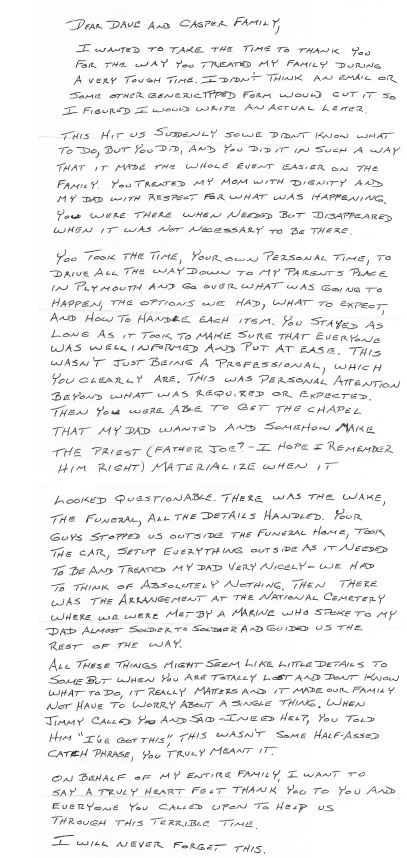 DEAR DAVE AND CASPER FAMILY,
I WANTED TO TAKE THE TIME TO THANK YOU
FOR THE WAY YOU TREATED MY FAMILY DURING
A VERY TOUGH TIME. I DIDN'T THINK AN EMAIL OR
SOME OTHER GENERIC TYPED FORM WOULD CUT IT SO
I FIGURED I WOULD WRITE AN ACTUAL LETTER.
THIS HIT US SUDDENLY SO WE DIDNT KNOW WHAT
TO DO, BUT YOU DID, AND YOU DID IT IN SUCH A WAY
THAT IT MADE THE WHOLE EVENT EASIER ON THE
FAMILY. YOU TREATED MY MOM WITH DIGNITY AND
MY DAD WITH RESPECT FOR WHAT WAS HAPPENING.
YOU WERE THERE WHEN NEEDED BUT DISAPPEARED
WHEN IT WAS NOT NECESSARY TO BE THERE.
YOU TOOK THE TIME, YOUR OWN PERSONAL TIME, TO
DRIVE ALL THE WAY DOWN TO MY PARENTS PLACE
IN PLYMOUTH AND GO OVER WHAT WAS GOING TO
HAPPEN, THE OPTIONS WE HAD, WHAT TO EXPECT,
AND HOW TO HANDLE EACH ITEM. YOU STAYED AS
LONG AS IT TOOK TO MAKE SURE THAT EVERYONE
WAS WELL INFORMED AND PUT AT EASE. THIS
WASN'T JUST BEING A PROFESSIONAL, WHICH
YOU CLEARLY ARE. THIS WAS PERSONAL ATTENTION
BEYOND WHAT WAS REQUIRED OR EXPECTED.
THEN YOU WERE ABLE TO GET THE CHAPEL
THAT MY DAD WANTED AND SOMEHOW MAKE
THE PRIEST (FATHER JOE? - I HOPE I REMEMBER
HIM RIGHT) MATERIALIZE WHEN IT
LOOKED QUESTIONABLE. THERE WAS THE WAKE,
THE FUNERAL, ALL THE DETAILS HANDLED. YOUR
GUYS STOPPED US OUTSIDE THE FUNERAL HOME, TOOK
THE CAR, SETUP EVERYTHING OUTSIDE AS IT NEEDED
TO BE AND TREATED MY DAD VERY NICELY - WE HAD
TO THINK OF ABSOLUTELY NOTHING. THEN THERE
WAS THE ARRANGEMENT AT THE NATIONAL CEMETERY
WHERE WE WERE MET BY A MARINE WHO SPOKE TO MY
DAD ALMOST SOLDIER TO SOLDIER AND GUIDED US THE
REST OF THE WAY.
ALL THESE THINGS MIGHT SEEM LIKE LITTLE DETAILS TO
SOME BUT WHEN YOU ARE TOTALLY LOST AND DONT KNOW
WHAT TO DO, IT REALLY MATTERS AND IT MADE OUR FAMILY
NOT HAVE TO WORRY ABOUT A SINGLE THING. WHEN
JIMMY CALLED YOU AND SAID - I NEED HELP, YOU TOLD
HIM "I'VE GOT THIS", THIS WASN'T SOME HALF-ASSED
CATCH PHRASE, YOU TRULY MEANT IT.
ON BEHALF OF MY ENTIRE FAMILY, I WANT TO
SAY A TRULY HEART FELT THANK YOU TO YOU AND
EVERYONE YOU CALLED UPON TO HELP US
THROUGH THIS TERRIBLE TIME.
I WILL NEVER FORGET THIS.